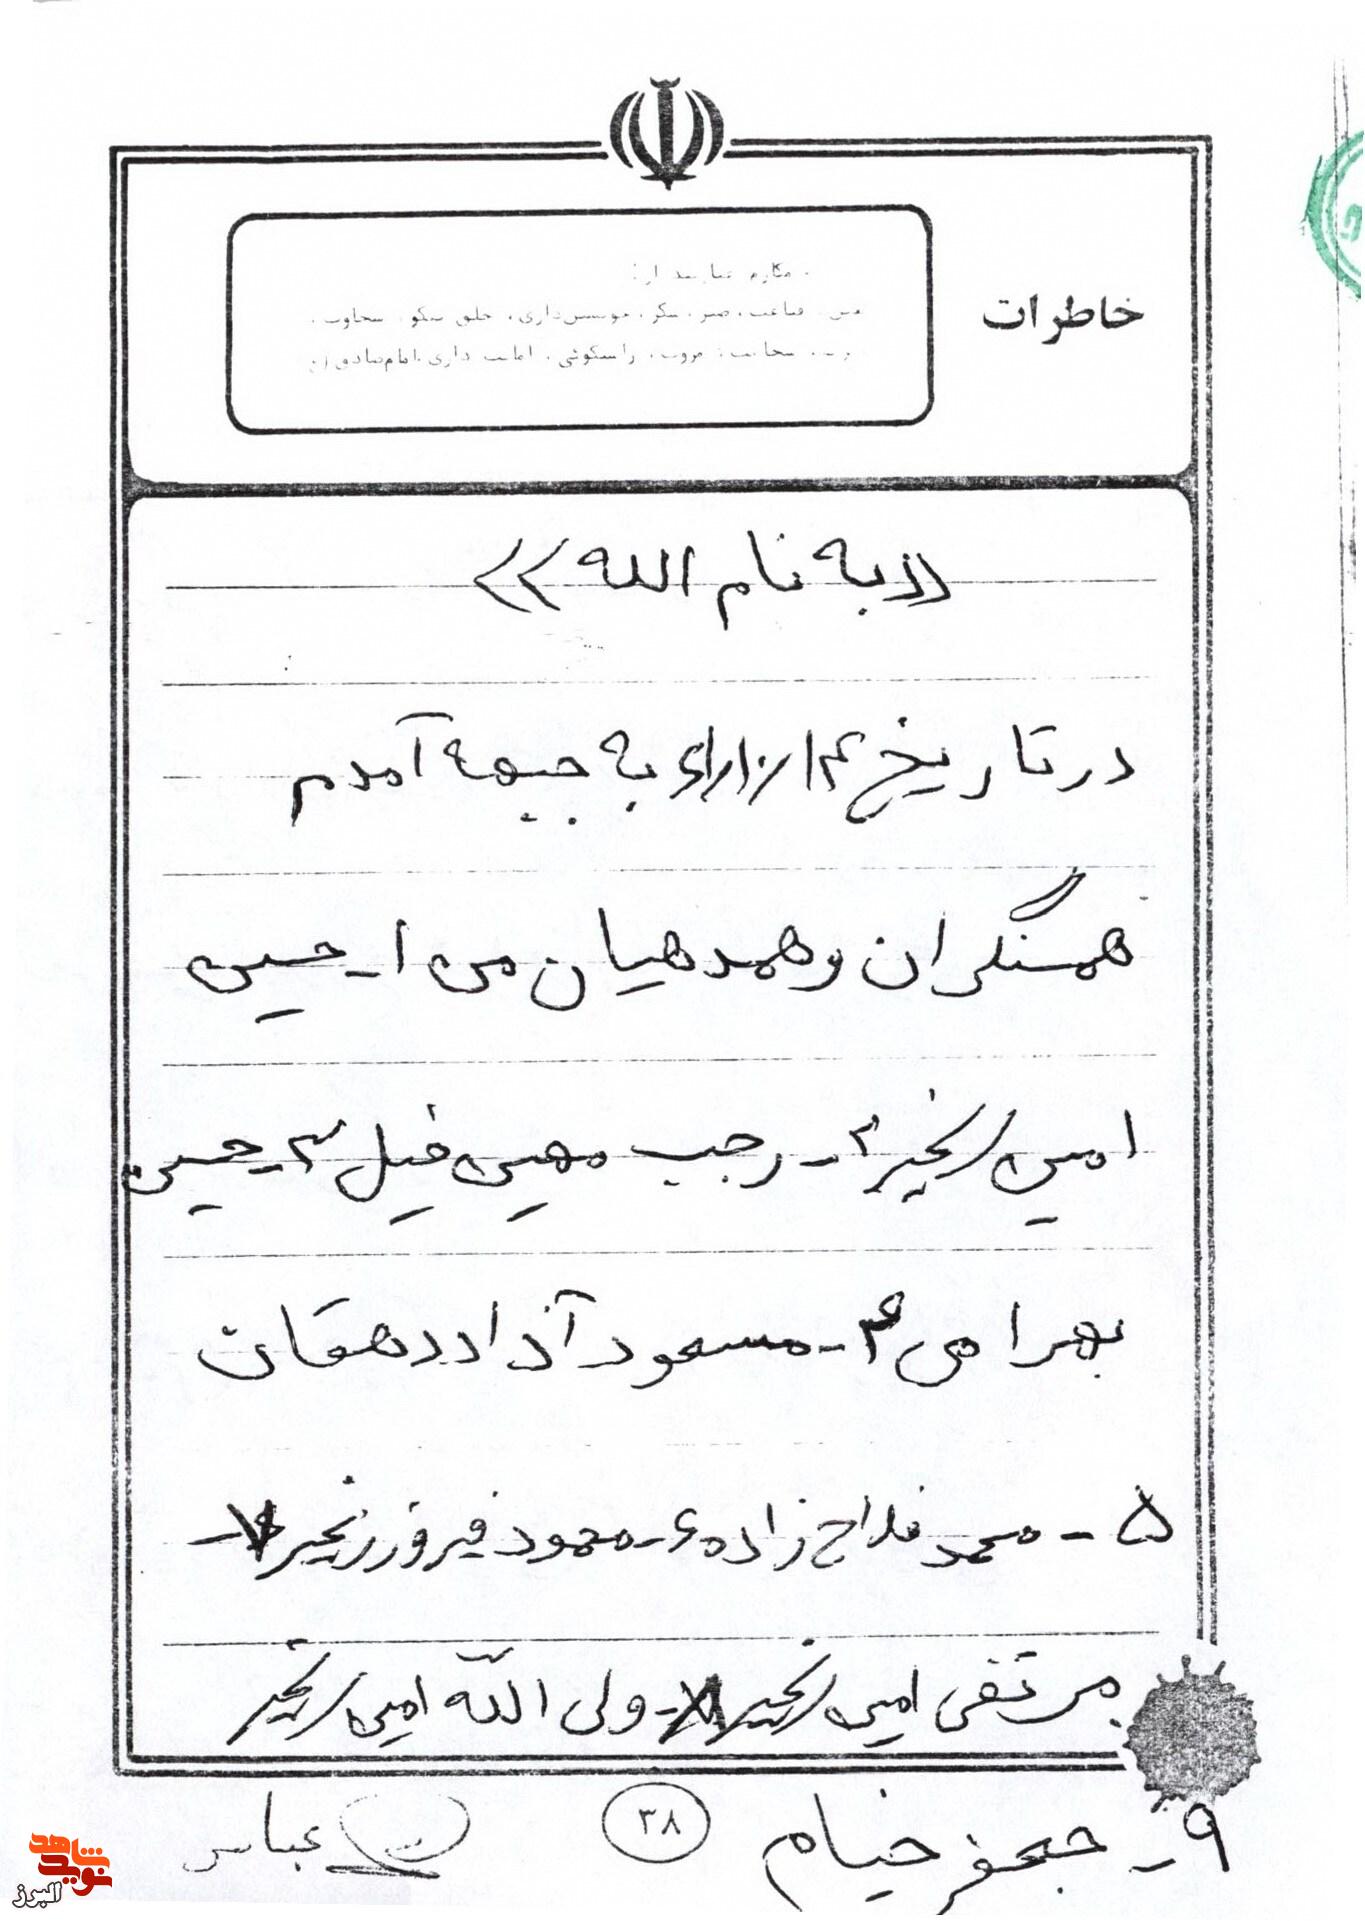 خاطرات
مکارم
قناعت، صبر، شکر، خویشتن‌داری، خلق نیکو، سخاوت،
مروت، راستگوئی، امانت داری. امام صادق (ع
«به نام الله»
در تاریخ به جبهه آمدم
همسنگران وهمدهیان من ۱ـ حسین
امین رنجبر ۲ـ رجب مهین فیل ۳ـ حسین
بهرامی ۴ـ مسعود آزاد دهقان
۵ ـ محمد فلاح زاده ۶ـ محمود فیروز رنجبر ۷ـ
مرتضی امین رنجبر ۸ـ ولی الله امین رنجبر
۹ـ جعفر خیام
۳۸
عباس
شاهد
نوید
البرز